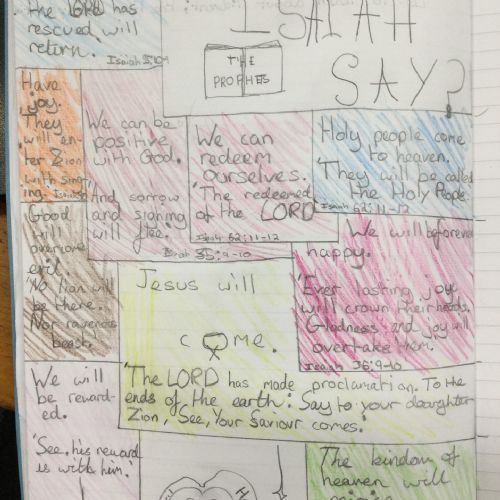 the LORD has
rescued will
return.
ISAIAH
SAY?
THE
PROPHETS
Have
joy.
They
will en-
ter Zion
with sing
ing.
We can be
positive
with God.
And sorrow
and signing
will flee.
35:9-10
We can
redeem
ourselves.
'The redeemed
of the LORD
Isaiah 62:11-12
Holy people come
to heaven.
'They will be called
the Holy People.
Isaiah 62:11-12
Good
will
overcome
evil.
'No lion will
be there.
Nor raveness
beast.
We will beforever
happy.
'Ever lasting joy
will crown their heads.
Gladness and joy will
overtake them.
Isaiah 36:9-10
Jesus will
come.
'The LORD has made proclamation. To the
ends of the earth: Say to your daughter
Zion, 'See, Your Saviour comes!'
We will
be reward-
ed.
'See, his reward
is with him.'
The kindom of
heaven will